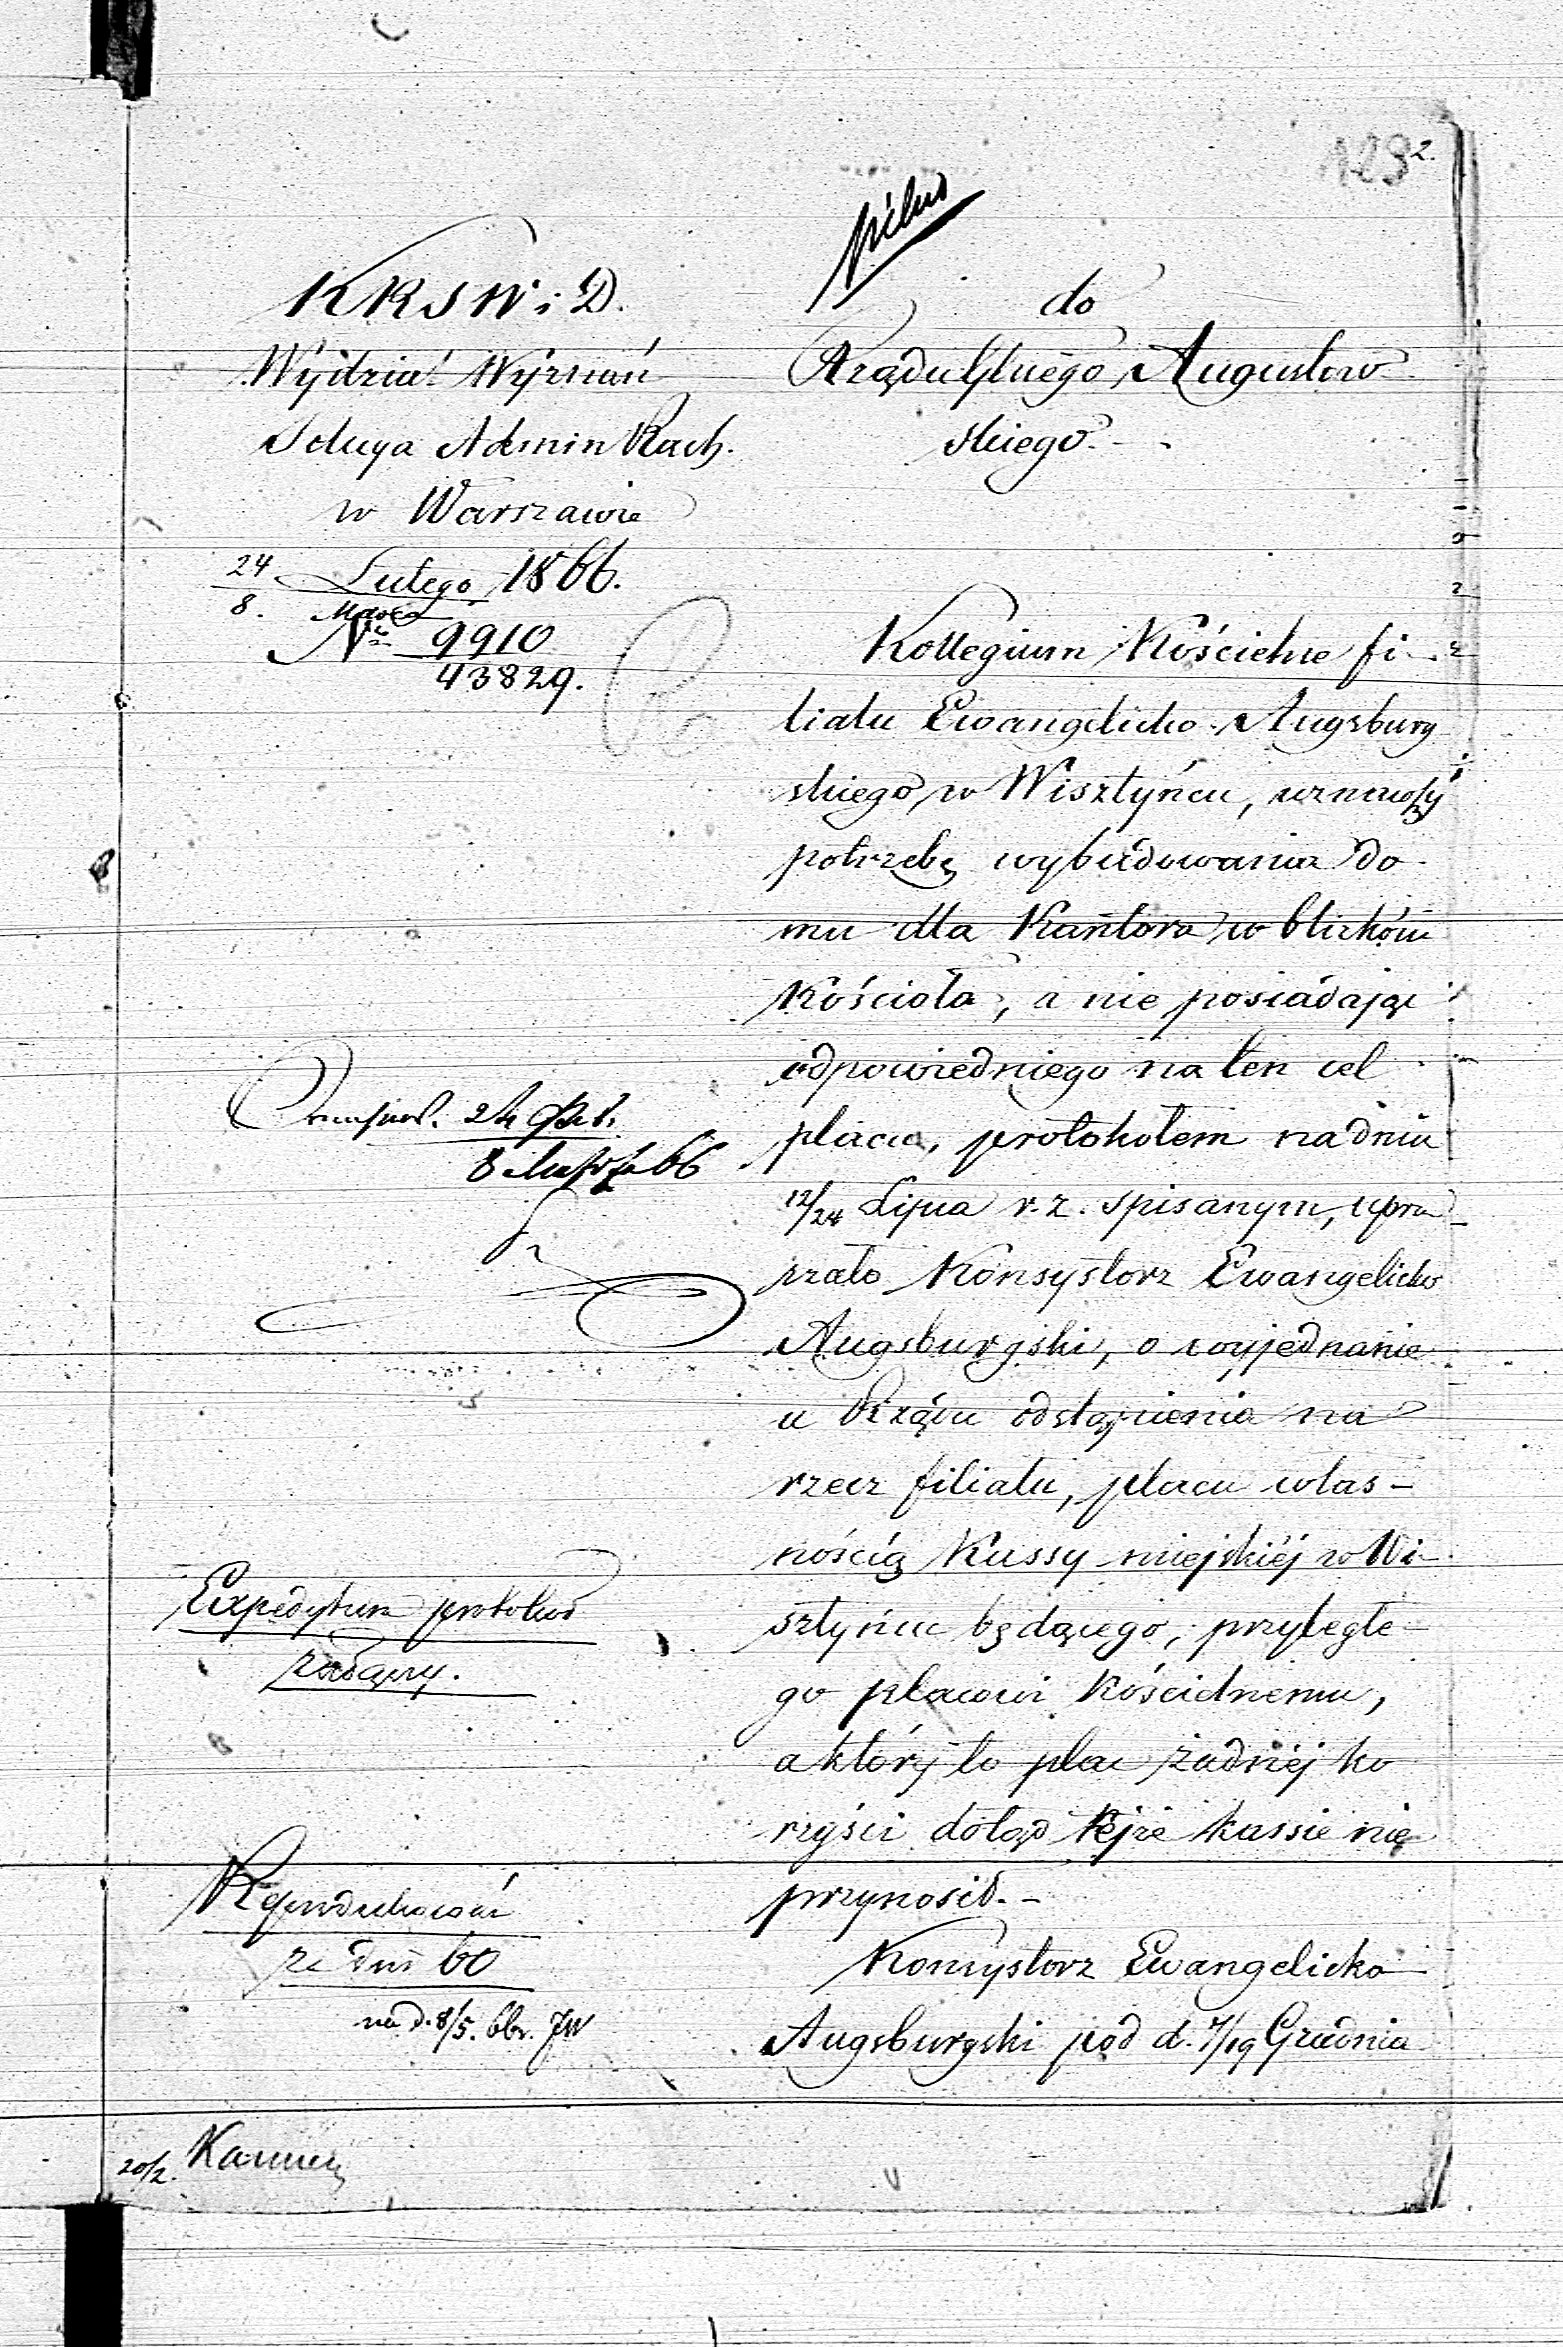 123 2.
pilno
KRSW i D.
Wydział Wyznań
Sekcya Admin Rach.
w Warszawie
24 Lutego 1866.
8. Marca
No 9910
43829.
do
Rządu Gbnego Augustow
skiego.
Kollegium Kościelne fi-
liału Ewangelicko-Augsburg
skiego w Wisztyńcu, uznawszy
potrzebę wybudowania do-
mu dla Kantora w bliskości
Kościoła, a nie posiadając
odpowiedniego na ten cel
placu, protokołem na dniu
12/24 Lipca r.z. spisanym, upra-
szało Konsystorz Ewangelicko
Augsburgski, o wyjednanie
u Rządu odstąpienia na
rzecz filiału, placu włas-
nością Kassy miejskiéj w Wi-
sztyńcu będącego, przyległe-
go placowi Kościelnemu,
a który to plac żadnéj ko
rzyści dotąd tejże kassie nie
przynosił.-
Konsystorz Ewangelicko
Augsburgski pod d. 7/19 Grudnia
24
8 66
Expedytura
Reprodukować
za dni 60
na d. 8/5. 66r. JW
20/2.